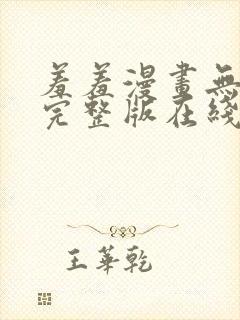 羞羞漫畫無
完整版在綫
王華乾